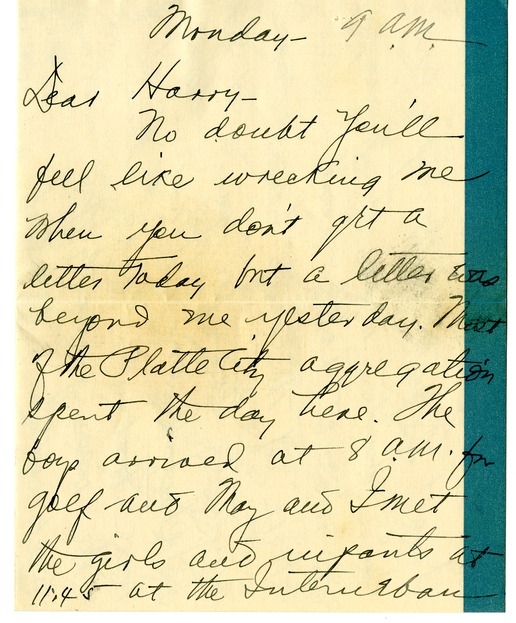 Monday- 9 a.m.
Dear Harry-
No doubt you'll
feel like wrecking me
when you don't get a
letter today but a letter was
beyond me yesterday. Most
of the Platte City aggregation
spent the day here. The
boys arrived at 8 a.m. for
golf and May and I met
the girls and infants at
11:45 at the Interurban